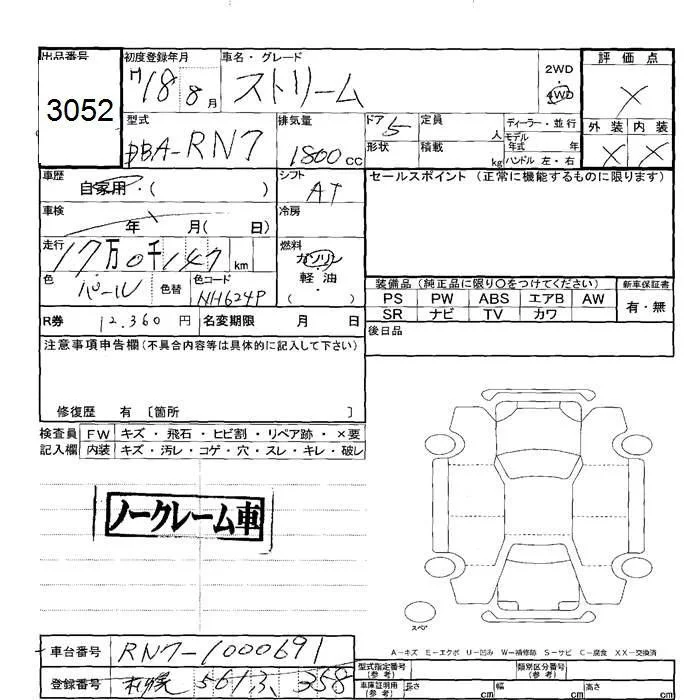 出品番号 初度登録年月 車名・グレード 2WD 評価点
3052 H18 8月 ストリーム 4WD ×
型式 排気量 ドア 5 定員 人 ディーラー・並行 外装 内装
DBA-RN7 1800cc 形状 積載 kg モデル年式 年 ハンドル 左・右 × ×
車歴 自家用・( ) シフト AT セールスポイント (正常に機能するものに限ります)
車検 年 月( 日) 冷房
走行 17万0千147 km 燃料 ガソリン
色 パール 色替 色コード NH624P 軽油 ( )
装備品 (純正品に限り○をつけてください) 新車保証書
PS PW ABS エアB AW 有・無
SR ナビ TV カワ
R券 12,360円 名変期限 月 日 後日品
注意事項申告欄(不具合内容等は具体的に記入して下さい)
修復歴 有 〔箇所 〕
検査員 FW キズ・飛石・ヒビ割・リペア跡・×要
記入欄 内装 キズ・汚レ・コゲ・穴・スレ・キレ・破レ
ノークレーム車
スペア
A-キズ E-エクボ U-凹み W-補修跡 S-サビ C-腐食 XX-交換済
車台番号 RN7-1000691 型式指定番号 (参考) 類別区分番号 (参考)
登録番号 358 車庫証明用 (参考) 長さ cm 幅 cm 高さ cm